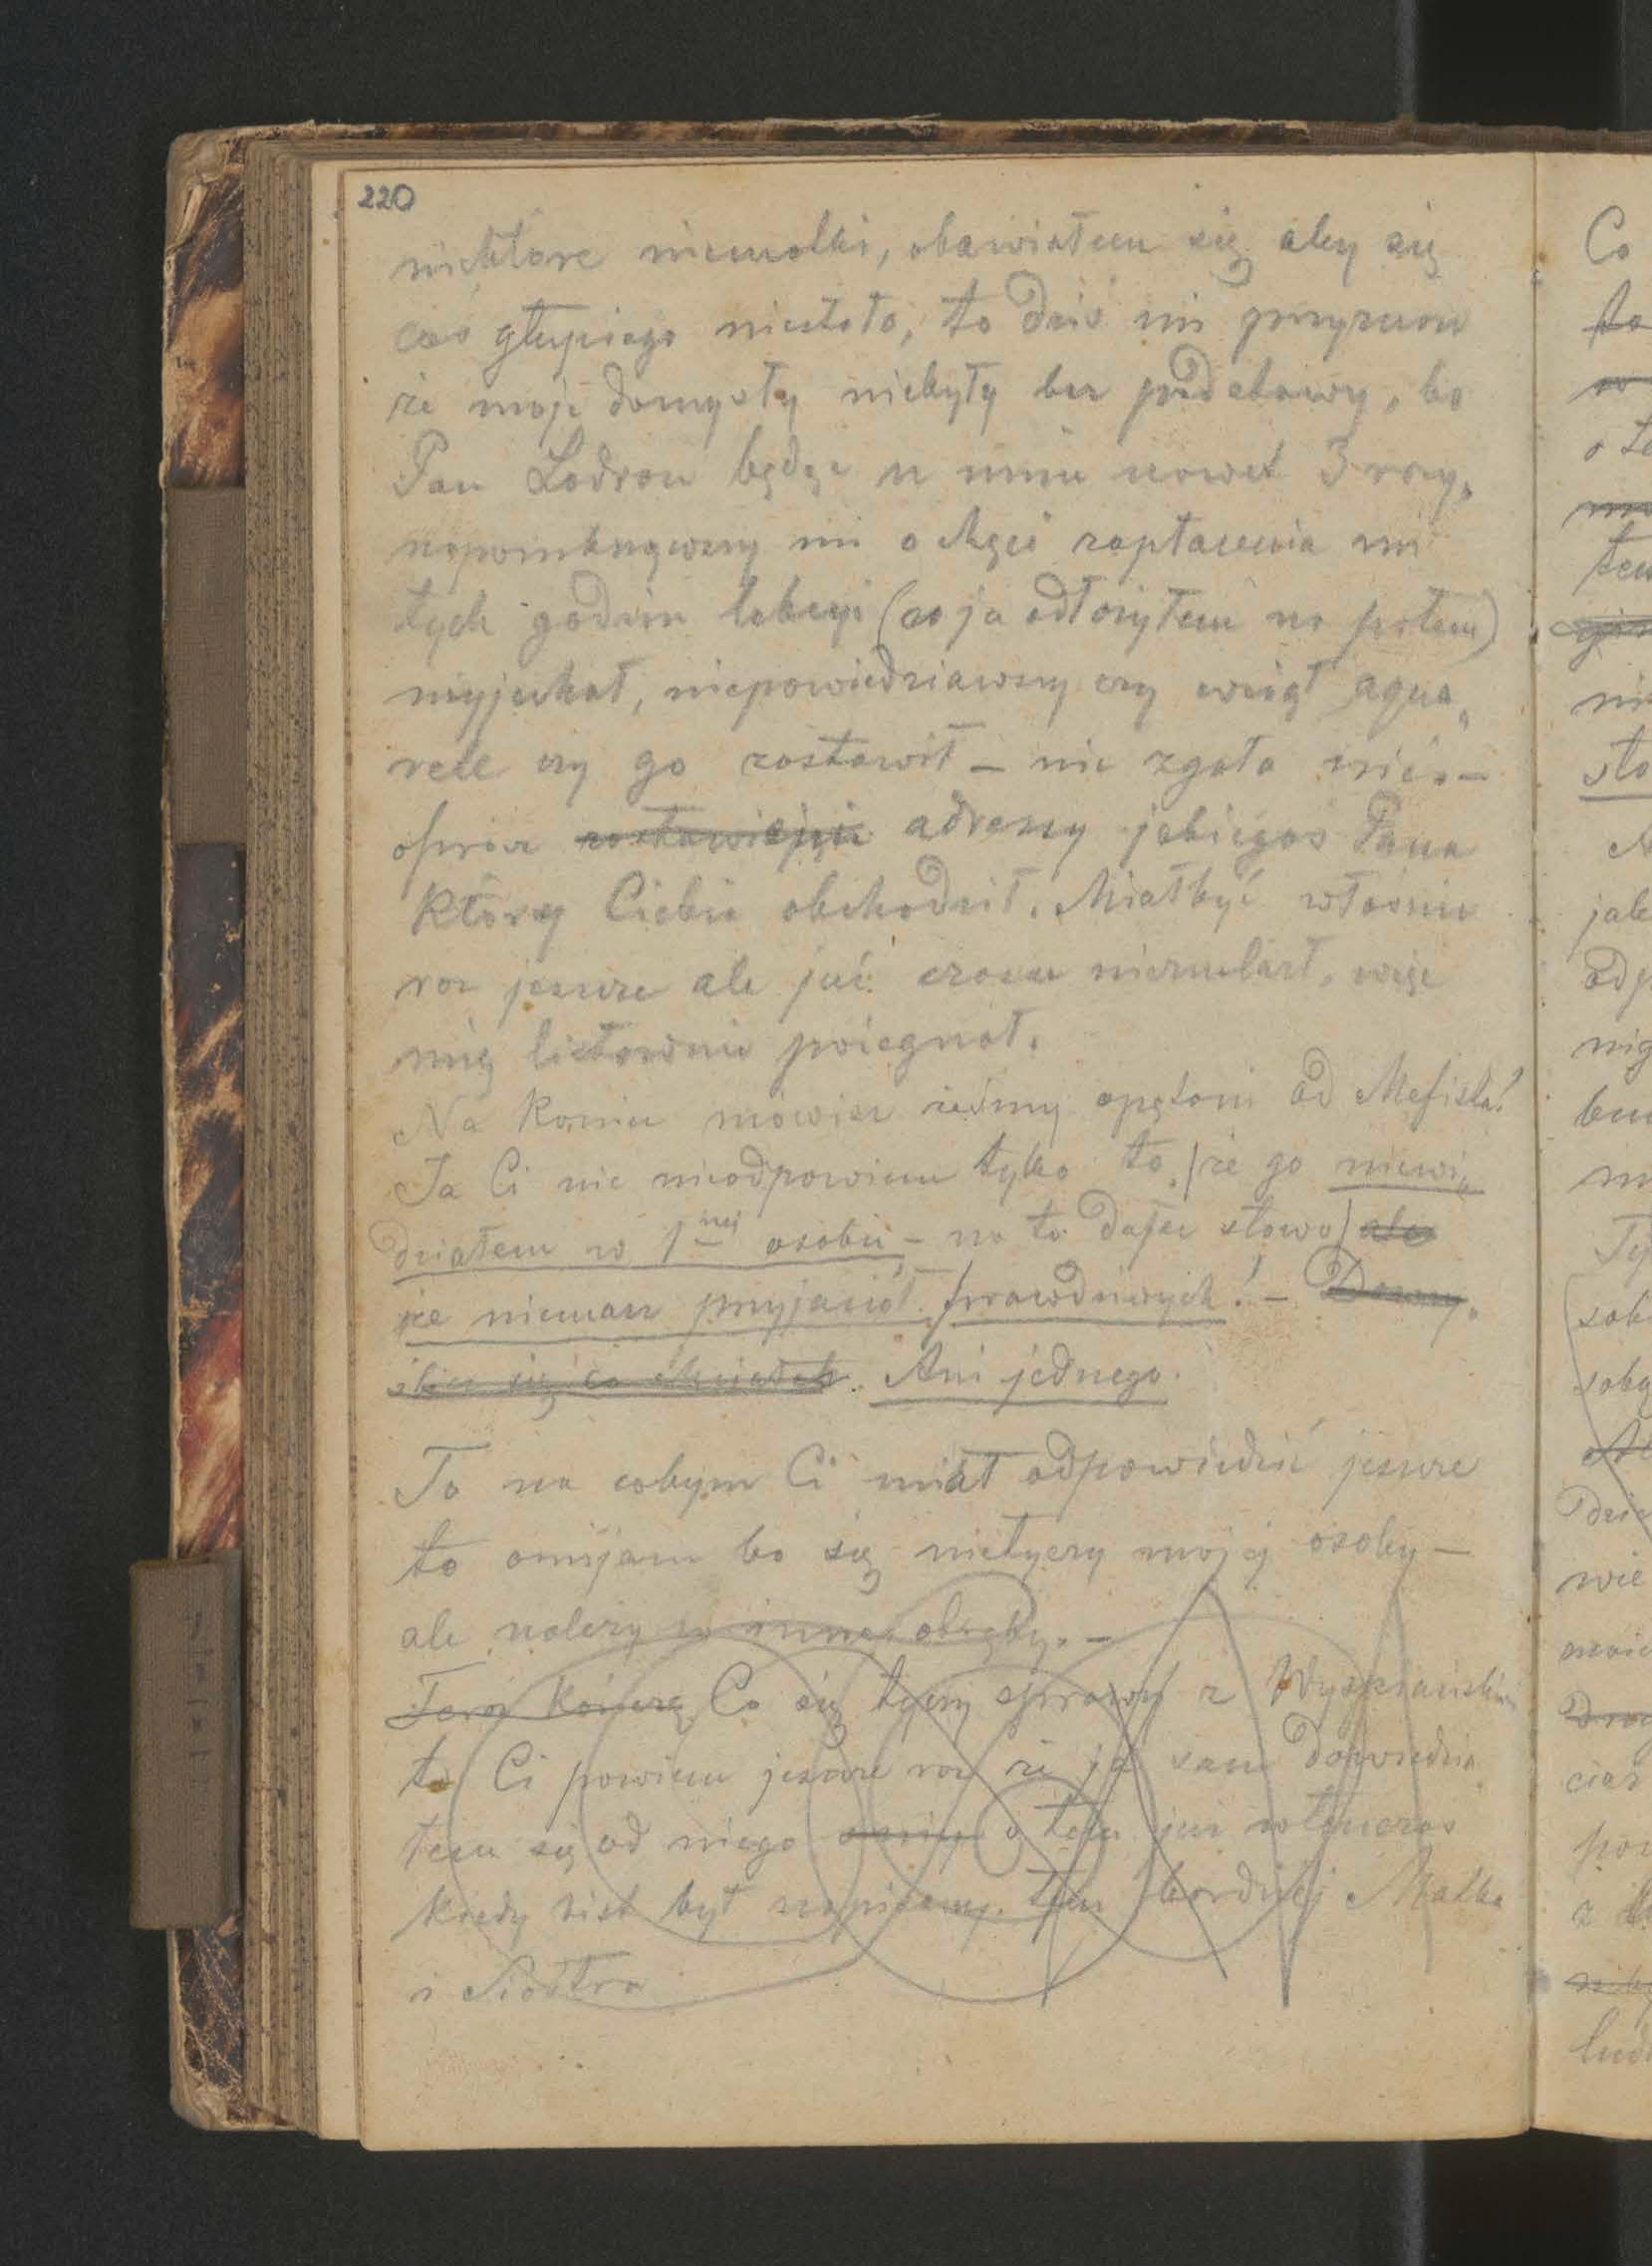 220
niektóre niewolki, obawiałem się aby się
coś głupiego niestało, to dziś mi przyznasz
że moje domysły niebyły bez podstawy, bo
Pan Lodron będąc u mnie nawet 3 razy,
napomknąwszy mi o chęci zapłacenia mi
tych godzin lekcyi (co ja odłożyłem na potem)
wyjechał, niepowiedziawszy czy wziął aqua„
rele czy go zostawił – nic zgoła nic. –
oprócz zostawienia adresy jakiegoś Pana
Który Ciebie obchodził. Miał być właśnie
raz jeszcze ale już czasu nieznalazł, więc
mię listownie pożegnał.
Na Koniec mówisz żeśmy opętani od Mefista?
Ja Ci nic nieodpowiem tylko to, (że go niewi„
działem w 1nej osobie – na to daję słowo) ale
że niemasz przyjaciół prawdziwych! – Domy„
ślisz się co chciałeb. Ani jednego.
To na cobym Ci miał odpowiedzieć jeszcze
to omijam bo się nietyczy mojej osoby –
ale należy w inne obręby. –
Co się tyczy sprawy z Wyspiańskim
to Ci powiem jeszcze raz że ja sam dowiedzia„
łem się od niego o tem już wtenczas
kiedy list był napisany. tem bardziej Matka
i Siostra
Co
to
o te
sto
jak
odp
nig